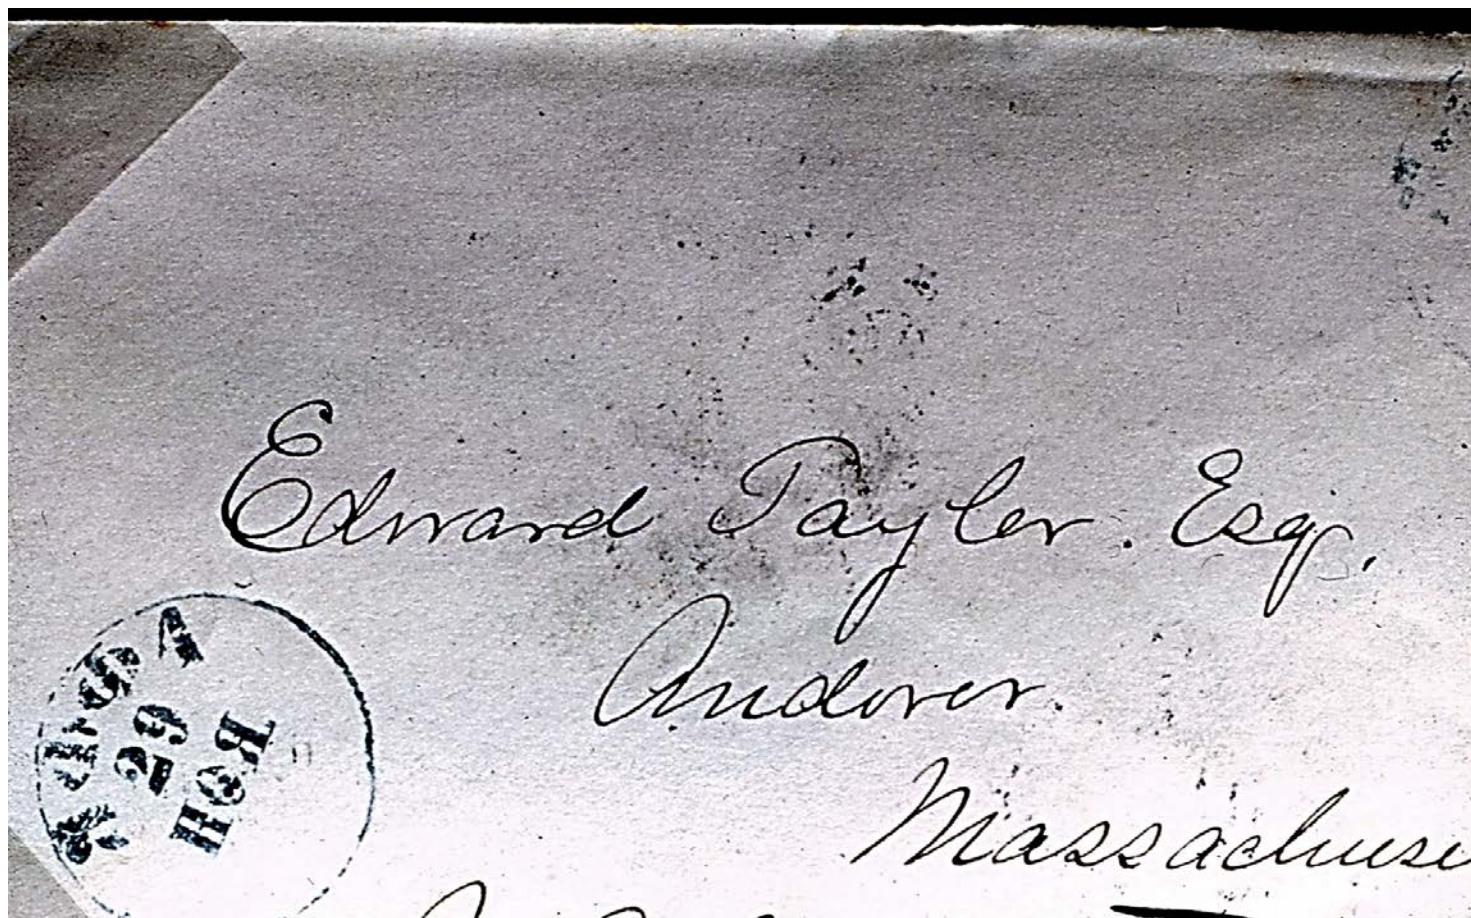 Edward Tayler. Esq,
Andover.
Massachuse
29
НОЯ